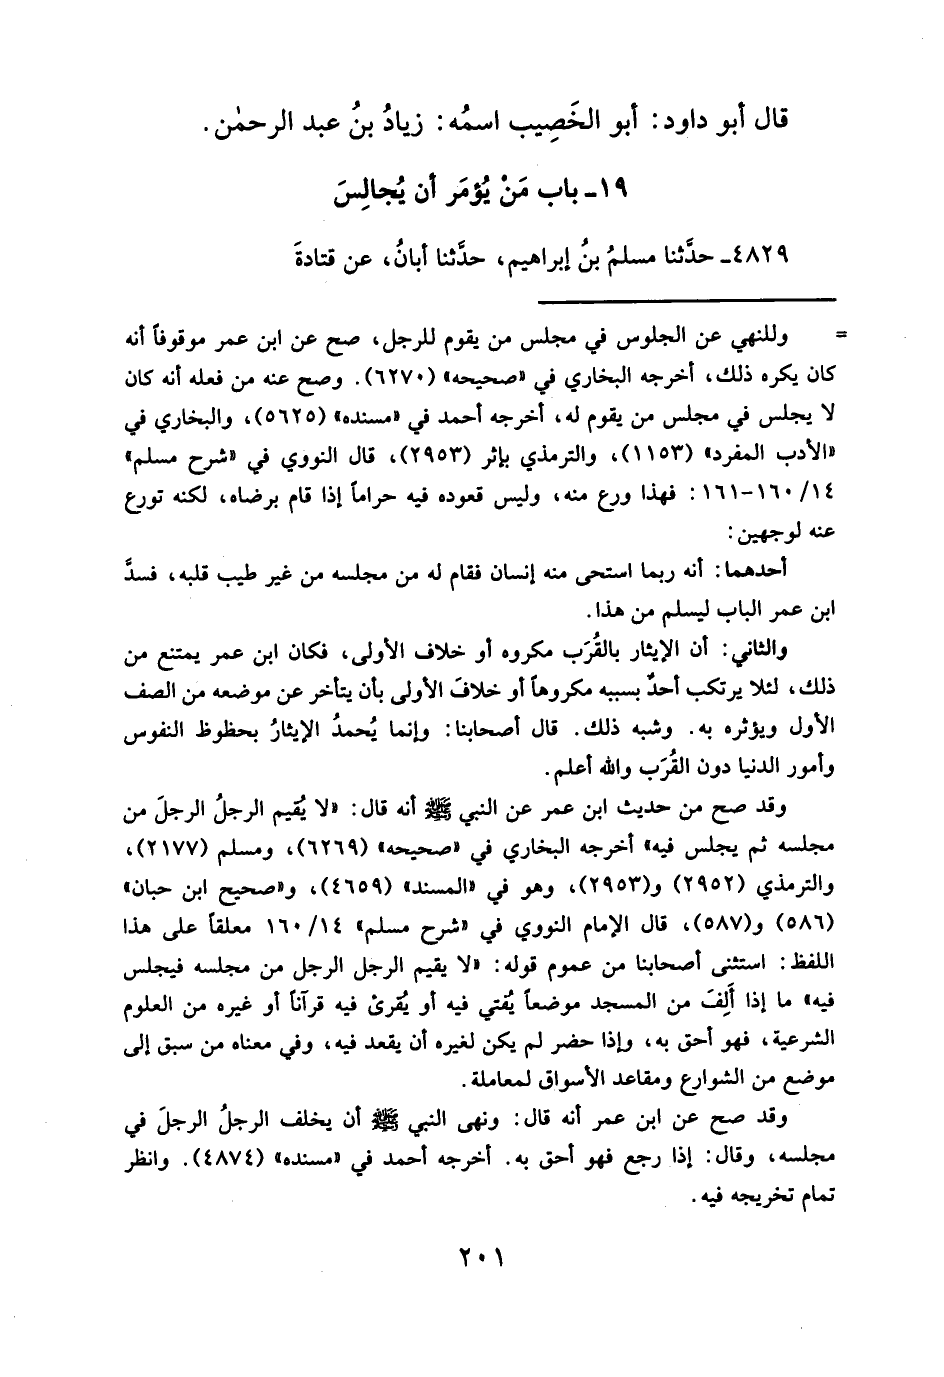 قال أبو داود: أبو الخَصِيب اسمُه: زيادُ بنُ عبد الرحمٰن.
١٩ـ باب مَنْ يُؤمَر أن يُجالِسَ
٤٨٢٩ـ حدَّثنا مسلمُ بنُ إبراهيم، حدَّثنا أبانُ، عن قتادةَ
= وللنهي عن الجلوس في مجلس من يقوم للرجل، صح عن ابن عمر موقوفاً أنه
كان يكره ذلك، أخرجه البخاري في «صحيحه» (٦٢٧٠). وصح عنه من فعله أنه كان
لا يجلس في مجلس من يقوم له، أخرجه أحمد في «مسنده» (٥٦٢٥)، والبخاري في
«الأدب المفرد» (١١٥٣)، والترمذي بإثر (٢٩٥٣)، قال النووي في «شرح مسلم»
١٤/ ١٦٠-١٦١: فهذا ورع منه، وليس قعوده فيه حراماً إذا قام برضاه، لكنه تورع
عنه لوجهين:
أحدهما: أنه ربما استحى منه إنسان فقام له من مجلسه من غير طيب قلبه، فسدَّ
ابن عمر الباب ليسلم من هذا.
والثاني: أن الإيثار بالقُرَب مكروه أو خلاف الأولى، فكان ابن عمر يمتنع من
ذلك، لئلا يرتكب أحدٌ بسببه مكروهاً أو خلافَ الأولى بأن يتأخر عن موضعه من الصف
الأول ويؤثره به. وشبه ذلك. قال أصحابنا: وإنما يُحمدُ الإيثارُ بحظوظ النفوس
وأمور الدنيا دون القُرَب والله أعلم.
وقد صح من حديث ابن عمر عن النبي ﷺ أنه قال: «لا يُقيم الرجلُ الرجلَ من
مجلسه ثم يجلس فيه» أخرجه البخاري في «صحيحه» (٦٢٦٩)، ومسلم (٢١٧٧)،
والترمذي (٢٩٥٢) و(٢٩٥٣)، وهو في «المسند» (٤٦٥٩)، و«صحيح ابن حبان»
(٥٨٦) و(٥٨٧)، قال الإمام النووي في «شرح مسلم» ١٤/ ١٦٠ معلقاً على هذا
اللفظ: استثنى أصحابنا من عموم قوله: «لا يقيم الرجل الرجل من مجلسه فيجلس
فيه» ما إذا أَلِفَ من المسجد موضعاً يُفتي فيه أو يُقرئ فيه قرآناً أو غيره من العلوم
الشرعية، فهو أحق به، وإذا حضر لم يكن لغيره أن يقعد فيه، وفي معناه من سبق إلى
موضع من الشوارع ومقاعد الأسواق لمعاملة.
وقد صح عن ابن عمر أنه قال: ونهى النبي ﷺ أن يخلف الرجلُ الرجلَ في
مجلسه، وقال: إذا رجع فهو أحق به. أخرجه أحمد في «مسنده» (٤٨٧٤). وانظر
تمام تخريجه فيه.
٢٠١